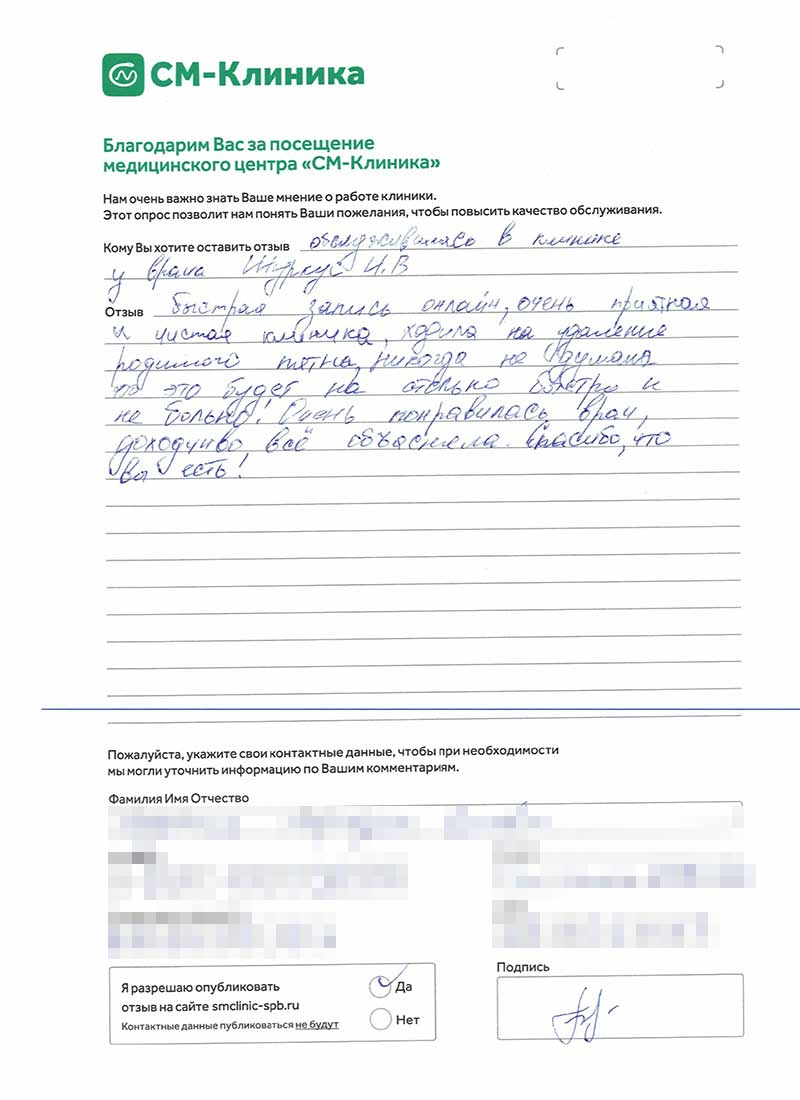 СМ-Клиника
Благодарим Вас за посещение
медицинского центра «СМ-Клиника»
Нам очень важно знать Ваше мнение о работе клиники.
Этот опрос позволит нам понять Ваши пожелания, чтобы повысить качество обслуживания.
Кому Вы хотите оставить отзыв обслуживалась в клинике
у врача Шуркус И.В
Отзыв быстрая запись онлайн, очень приятная
и чистая клиника, ходила на удаление
родимого пятна, никогда не думала
что это будет на столько быстро и
не больно! Очень понравилась врач,
доходчиво всё объясняла. Спасибо, что
вы есть!
Пожалуйста, укажите свои контактные данные, чтобы при необходимости
мы могли уточнить информацию по Вашим комментариям.
Фамилия Имя Отчество
Я разрешаю опубликовать
отзыв на сайте smclinic-spb.ru
Контактные данные публиковаться не будут
Да
Нет
Подпись